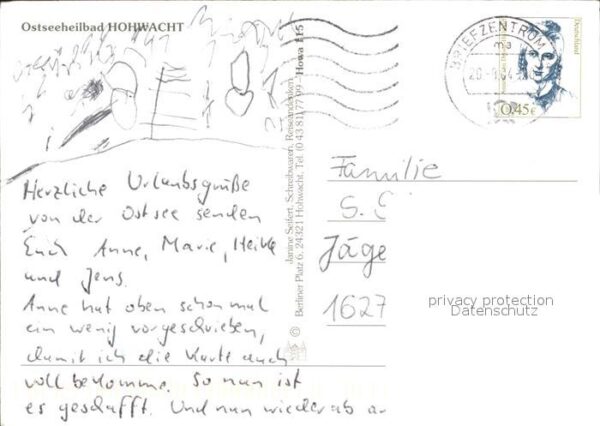 Ostseeheilbad HOHWACHT
Herzliche Urlaubsgrüße
von der Ostsee senden
Euch Anne, Marie, Heike
und Jens.
Anne hat oben schon mal
ein wenig vorgeschrieben,
damit ich die Karte auch
voll bekomme. So nun ist
es geschafft. Und nun wieder ab
Janine Seifert, Schreibwaren, Reiseandenken
Berliner Platz 6, 24321 Hohwacht, Tel. (0 43 81) 77 09
Howa 115
©
BRIEFZENTRUM
ma
Deutschland
0,45€
Familie
S.
Jäge
1627
privacy protection
Datenschutz